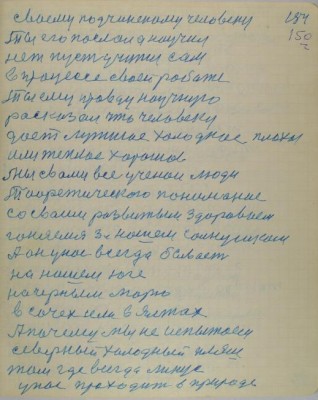 своему подчиненому человеку 154
Ты его послал а научил 150
нет пусть учиться сам
в процессе своей работе
Ты ему правду научную
расказал что человеку
дает лутшее холодное плохое
или теплое хорошое
Мы с вами все ученои люди
Теоретического понимание
со своим развитым здороваем
гоняемся за нашем солнушком
А оно уное всегда бывает
на нашем юге
на черным морю
в сочех или в Ялтах
А почему мы не испытаем
северный холодный пляж
там где всегда минус
уное проходит в природе